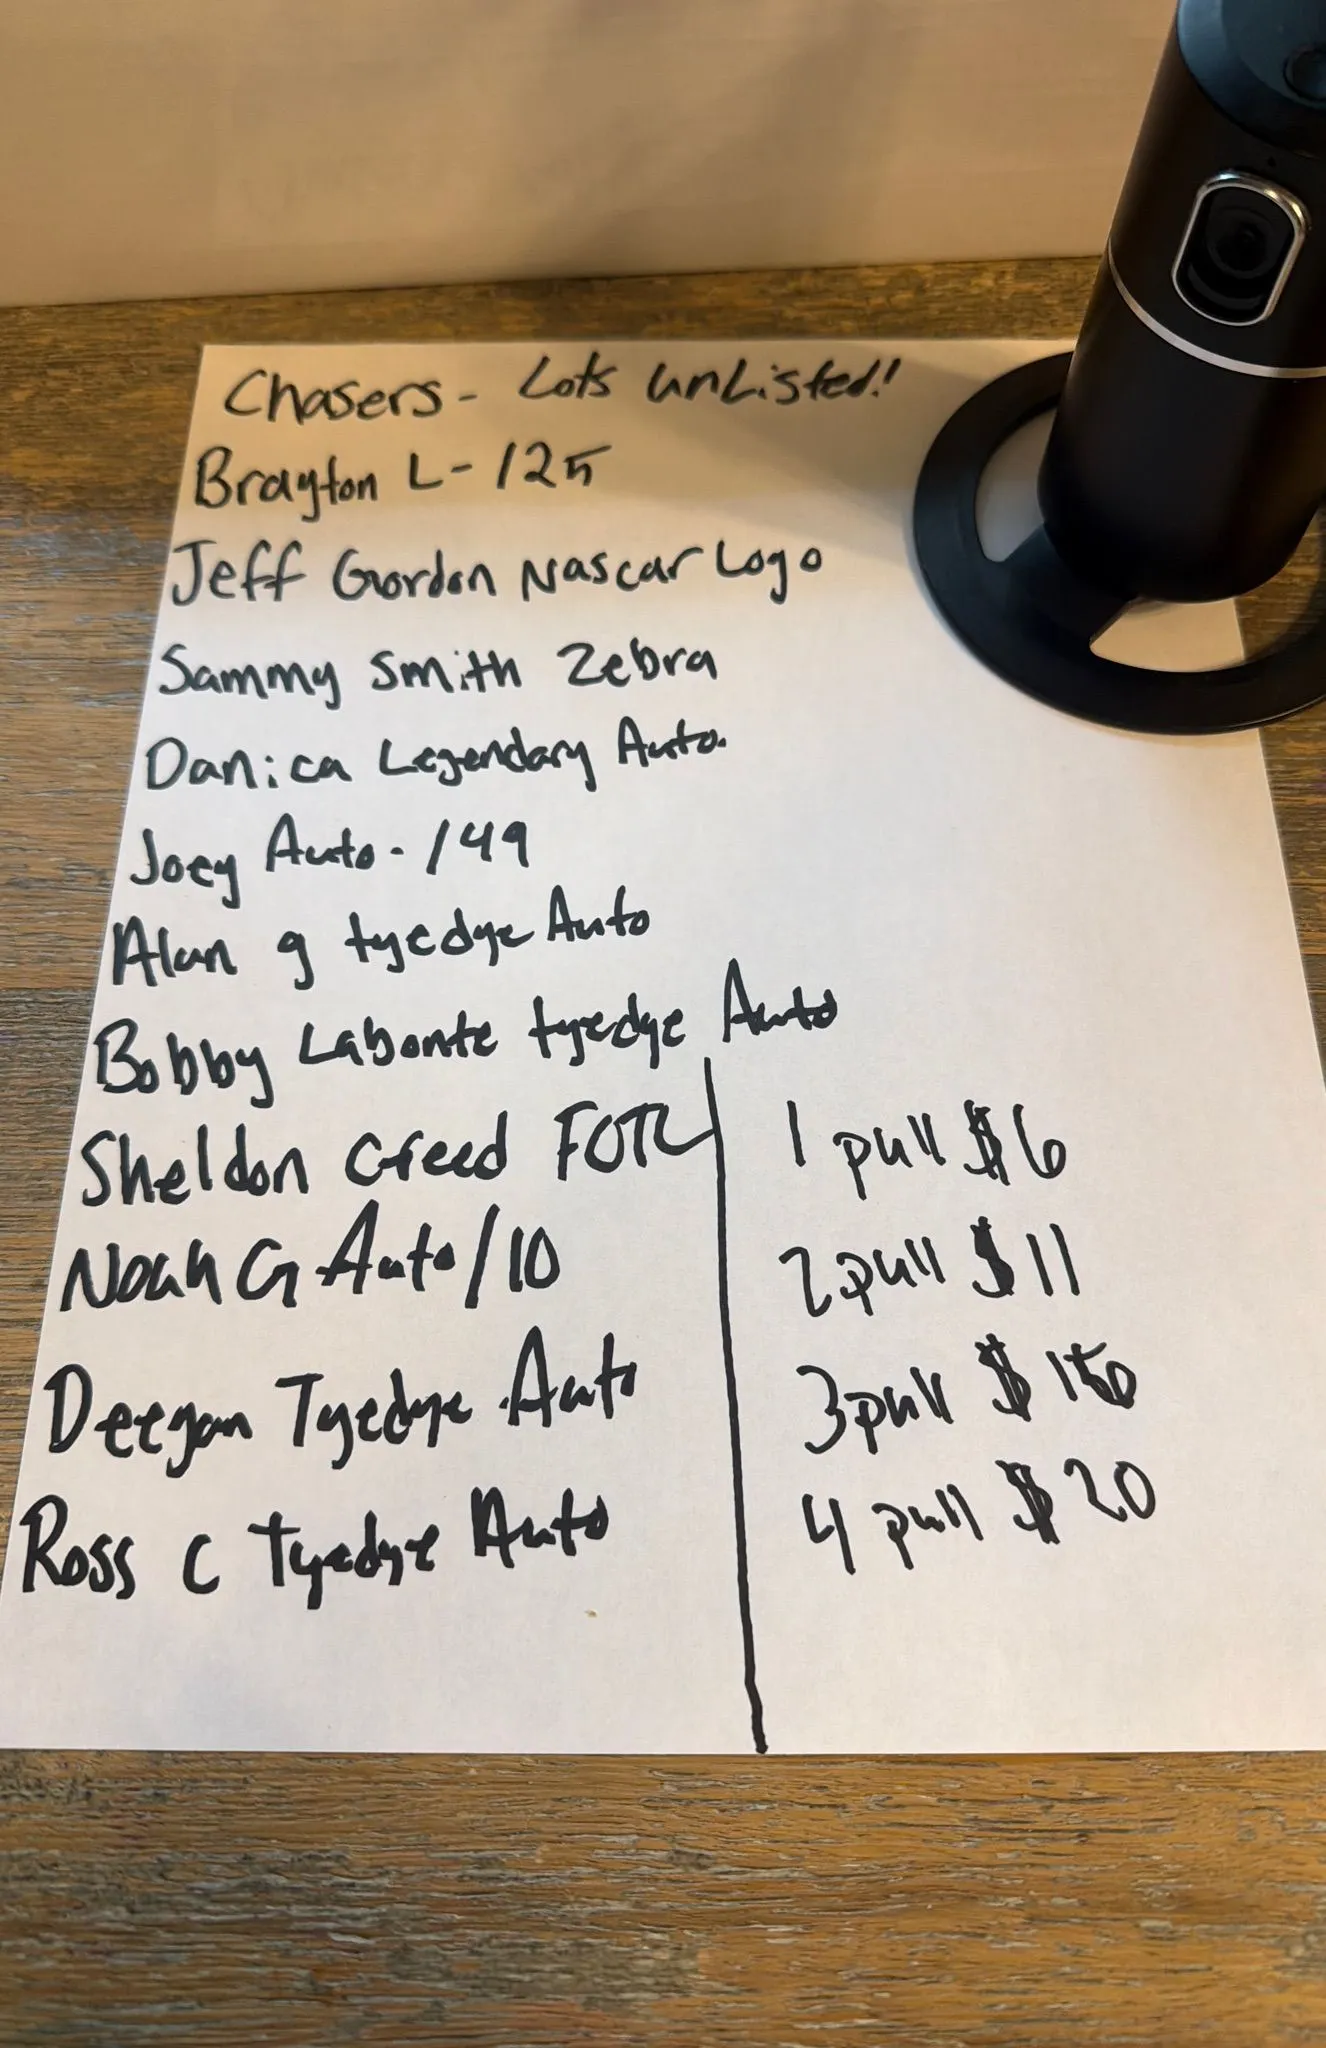 Chasers - Lots unListed!
Brayton L - /25
Jeff Gordon Nascar Logo
Sammy Smith Zebra
Danica Legendary Auto.
Joey Auto - /49
Alan g tyedye Auto
Bobby Labonte tyedye Auto
Sheldon Creed FOTL
Noah G Auto /10
Deegan Tyedye Auto
Ross C Tyedye Auto
1 pull $6
2 pull $11
3 pull $
4 pull $20